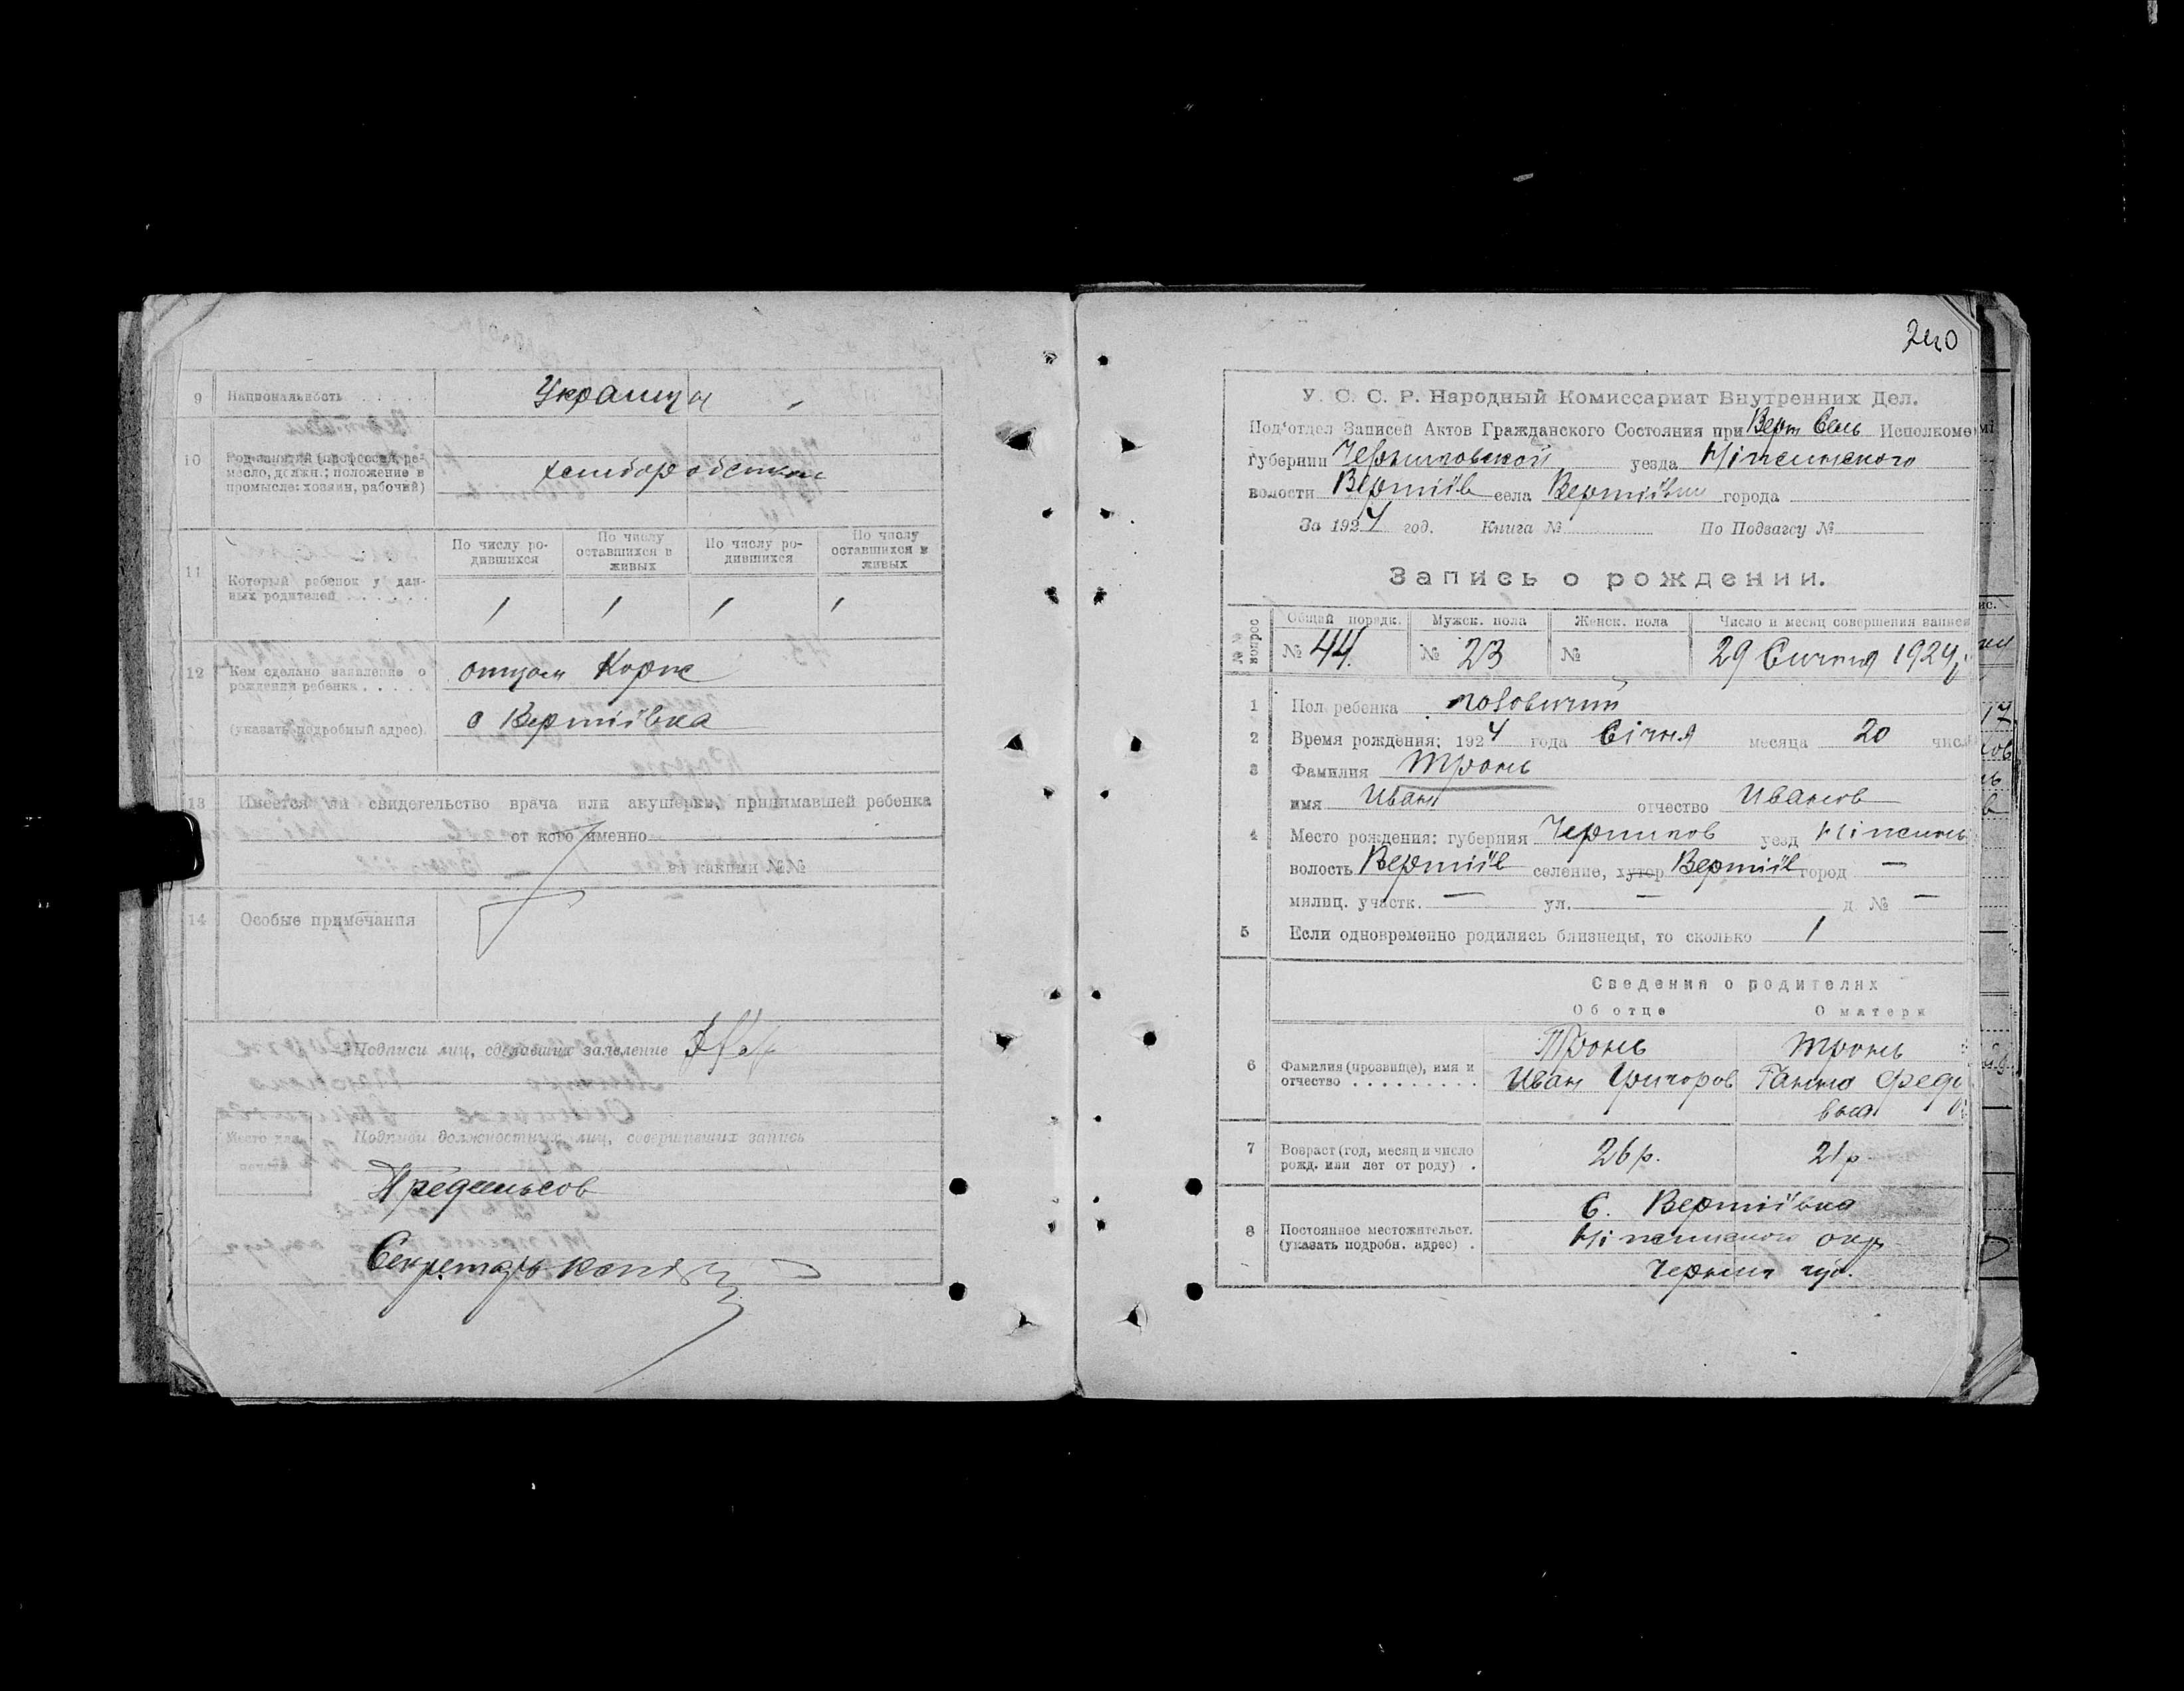 9 Национальность Украинцы
10 Род занятий (профессия, ре-
месло, должн.; положение в
промысле: хозяин, рабочий)
хлиборобство
11 Который ребенок у дан-
ных родителей
По числу ро-
дившихся
По числу
оставшихся в
живых
По числу ро-
дившихся
По числу
оставшихся в
живых
1 1 1 1
12 Кем сделано заявление о
рождении ребенка
отцом Корж
(указать подробный адрес)
с Вертіївка
13 Имеется ли свидетельство врача или акушерки, принимавшей ребенка
от кого именно
за какими №№
14 Особые примечания
Подписи лиц, сделавших заявление
Место для
Подписи должностных лиц, совершивших запись
Секретарь
240
У. С. С. Р. Народный Комиссариат Внутренних Дел.
Под'отдел Записей Актов Гражданского Состояния при Верт Сель Исполкоме
губернии Черниговской уезда Ніженського
волости Вертіїв села Вертіївки города
За 1924 год. Книга № По Подзагсу №
Запись о рождении.
№№ вопрос
Общий порядк. Мужск. пола Женск. пола Число и месяц совершения записи
№ 44. № 23 № 29 Сичня 1924
1 Пол ребенка чоловичий
2 Время рождения: 1924 года Січня месяца 20 числ
3 Фамилия Тронь
имя Иван отчество Иванов
4 Место рождения: губерния Чернигов уезд Ніжень
волость Вертіїв селение, хутор Вертіїв город —
милиц. участк. — ул. — д. № —
5 Если одновременно родились близнецы, то сколько 1
Сведения о родителях
Об отце О матери
6 Фамилия (прозвище), имя и
отчество
Тронь Тронь
Иван Григоров Ганна Федо
вна
7 Возраст (год, месяц и число
рожд. или лет от роду)
26 р. 21 р.
8 Постоянное местожительст.
(указать подробн. адрес)
С. Вертіївка
Ніженського окр
Черниг губ.